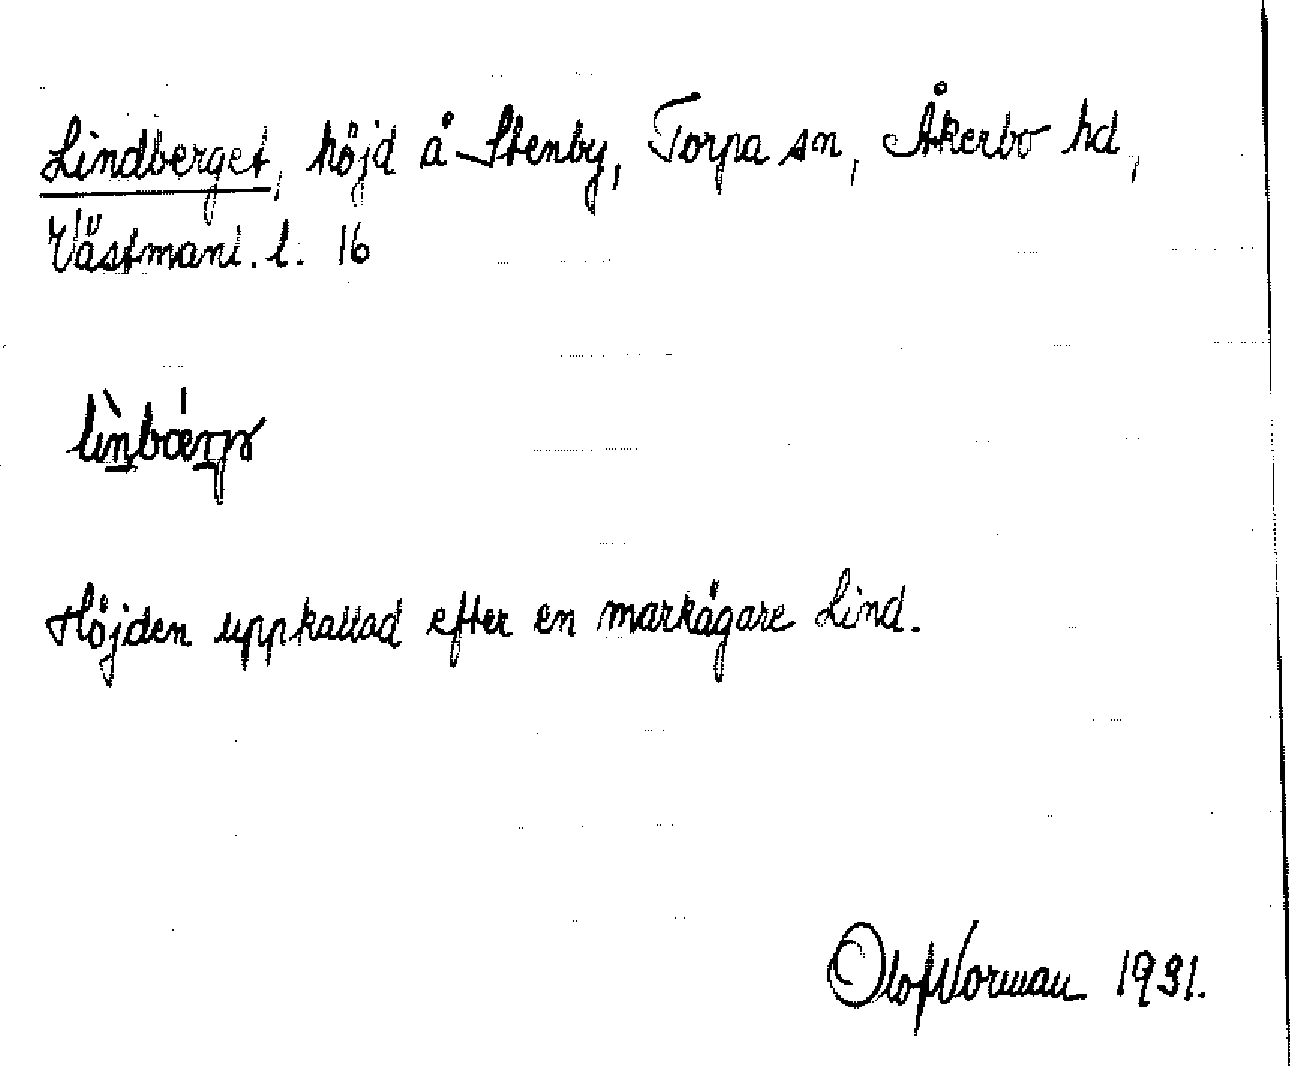 Lindberget, höjd å Stenby, Torpa sn, Åkerbo hd,
Västmanl. l. 16
Höjden uppkallad efter en markägare Lind.
Olof Norman 1931.